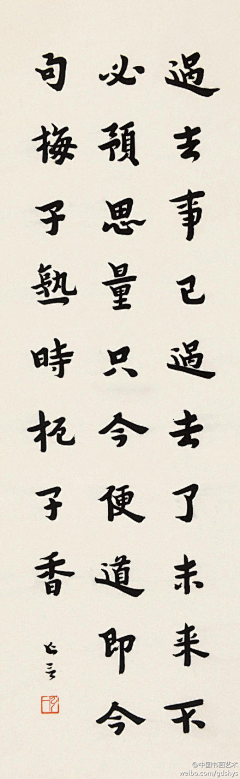 過去事已過去了未来不
必預思量只今便道即今
句梅子熟時枙子香
@中国书画艺术
weibo.com/gdshys